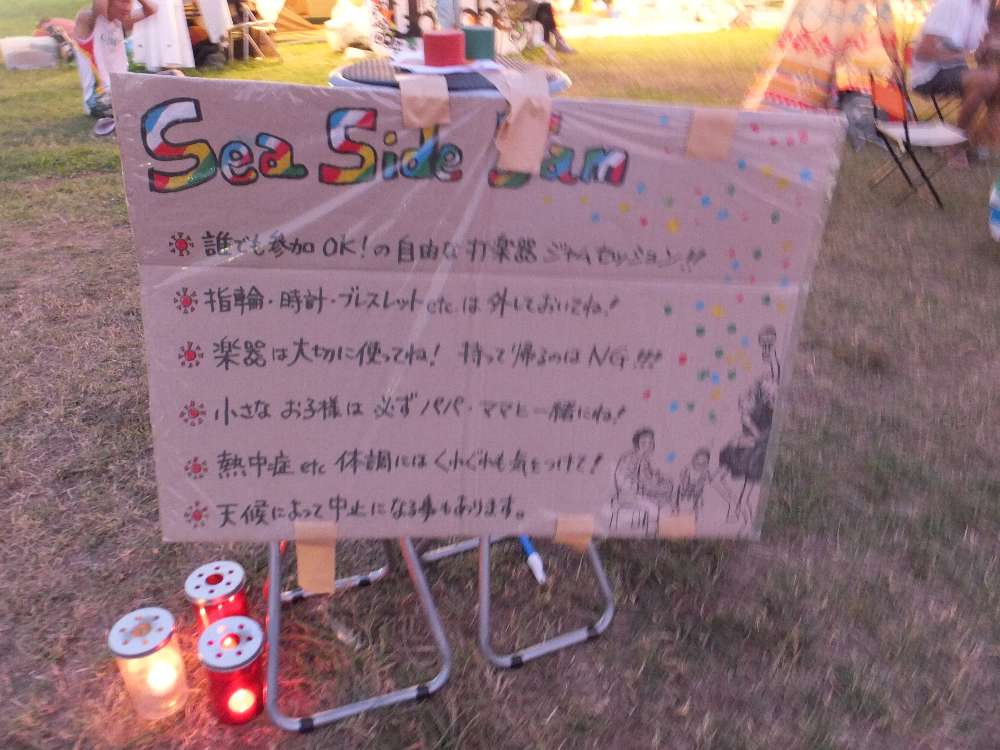 Sea Side Jam
誰でも参加OK!の自由な打楽器ジャムセッション!!
指輪・時計・ブレスレットetc.は外しておいてね!
楽器は大切に使ってね! 持って帰るのはNG!!!
小さなお子様は必ずパパ・ママと一緒にね!
熱中症etc体調にはくれぐれも気をつけて!
天候によって中止になる事もあります。